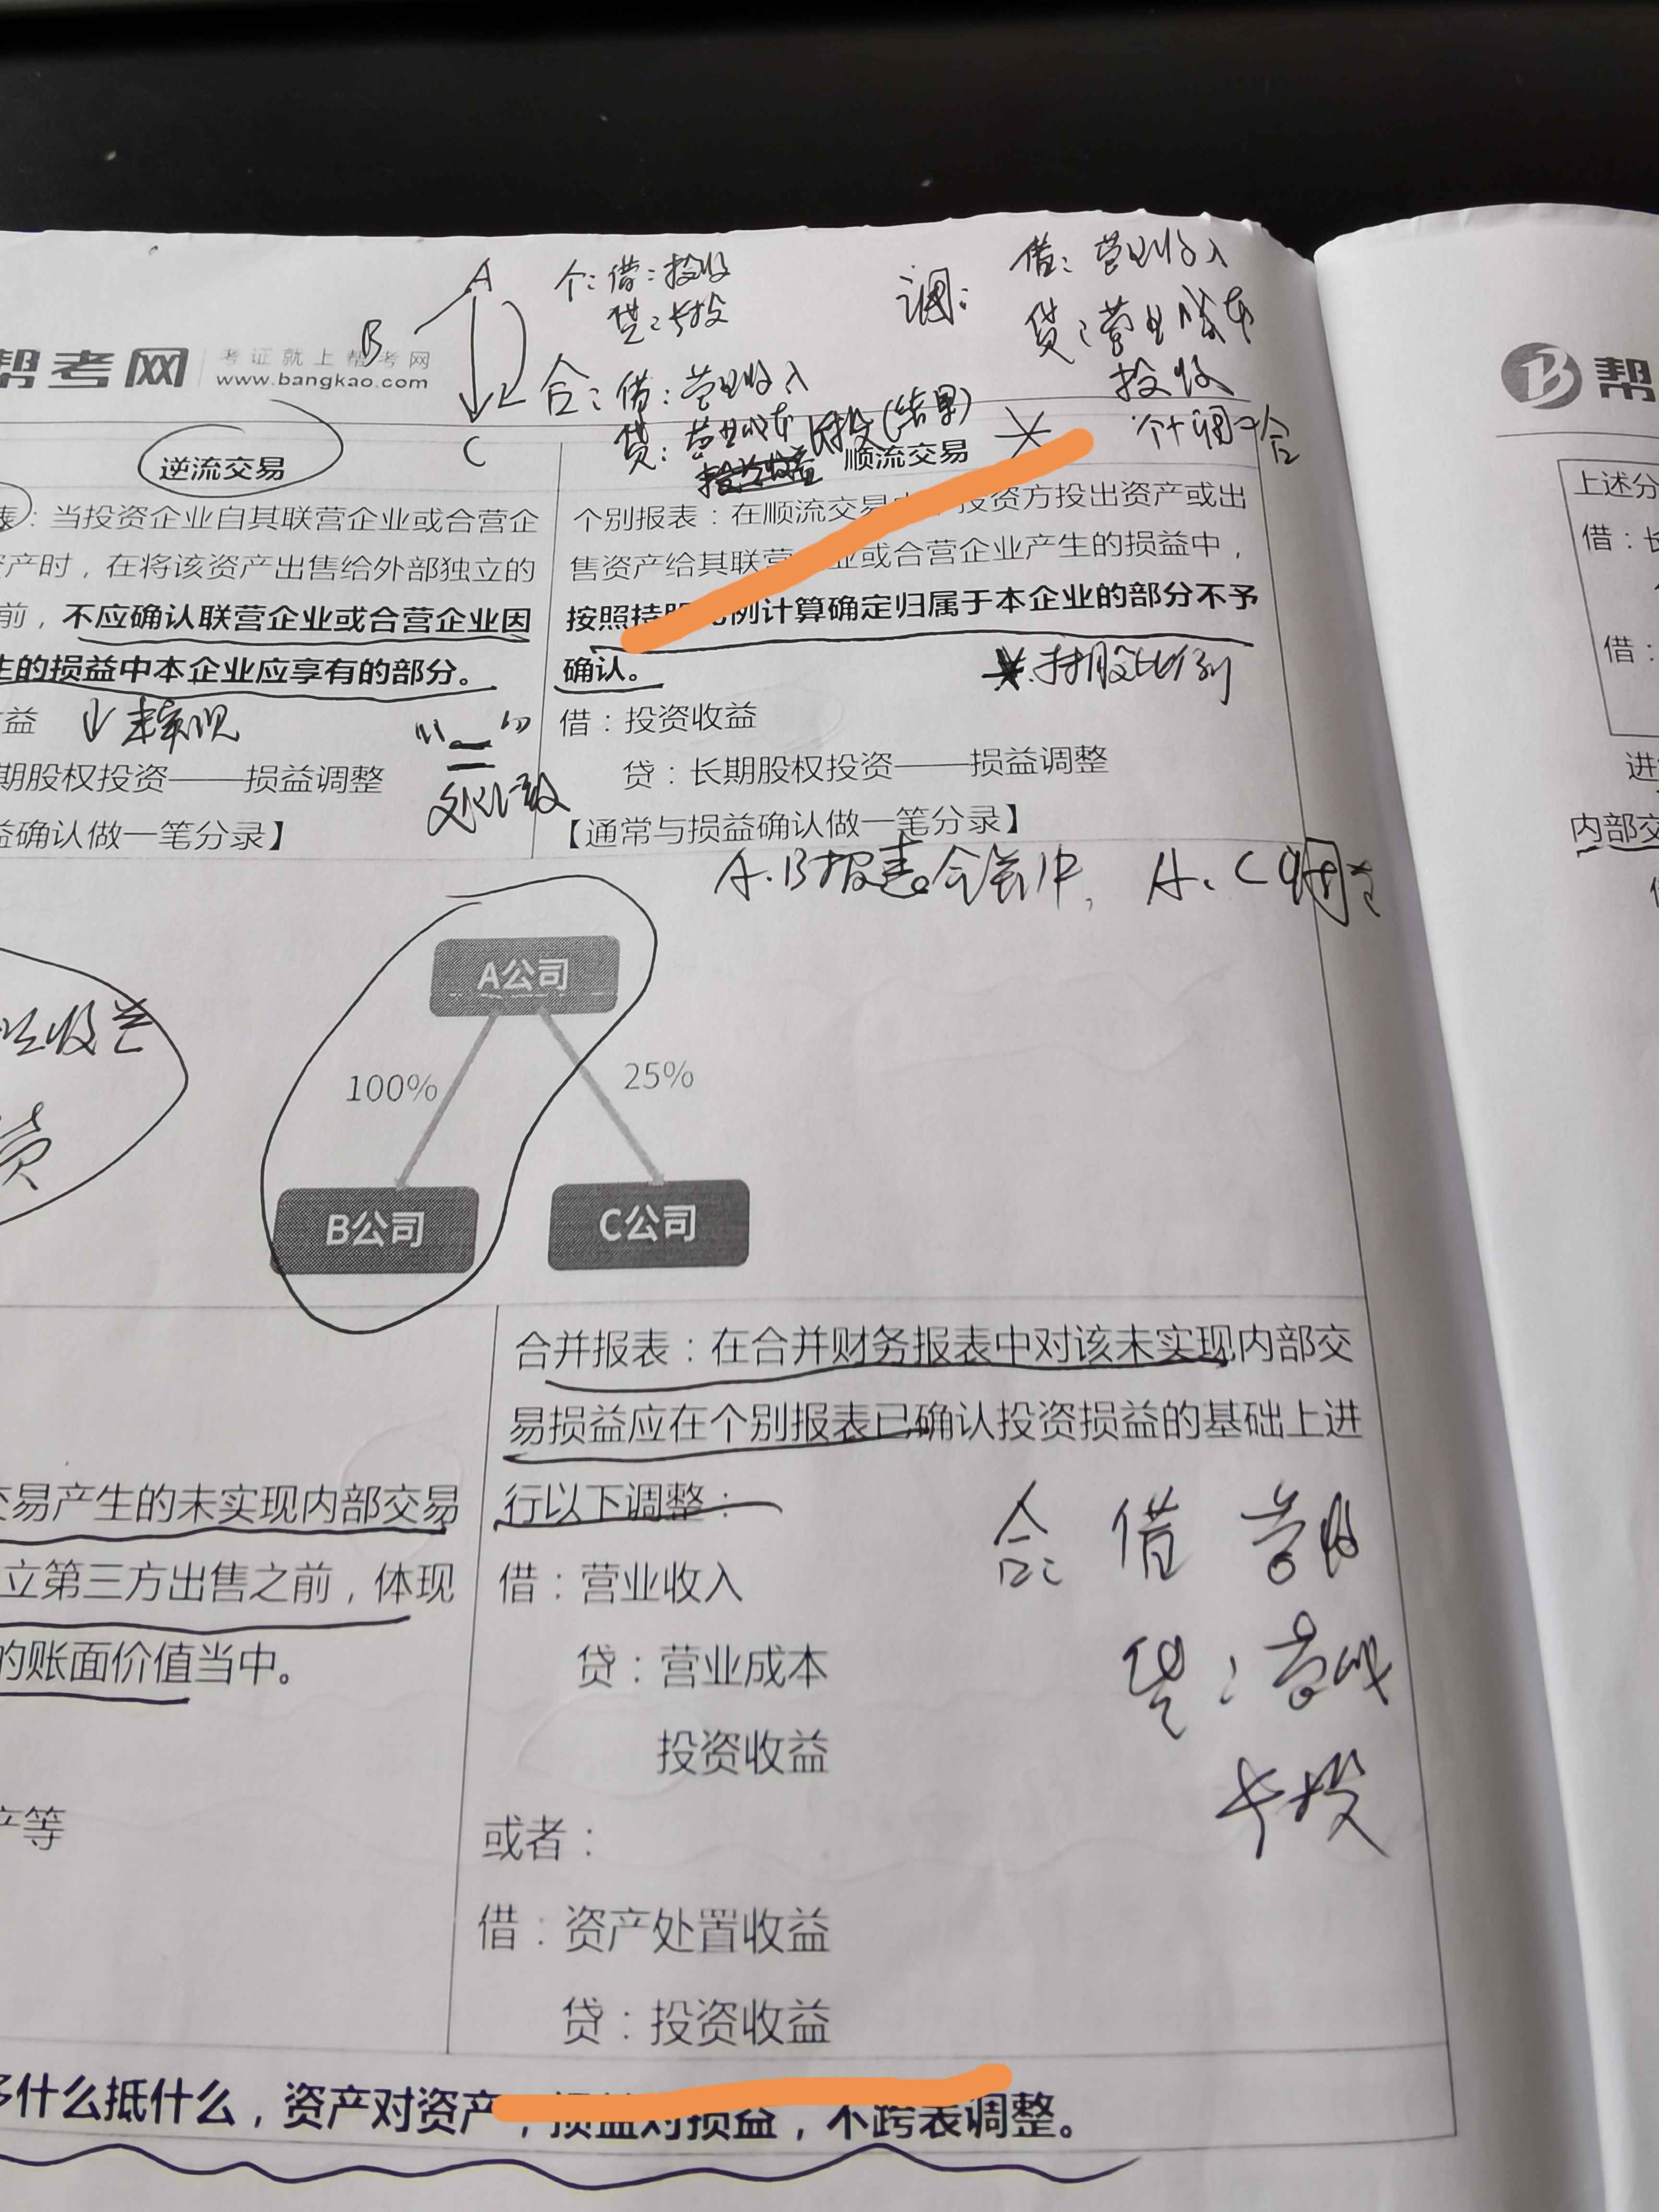 A
个：借：投收
贷：长投
B
合：借：营业收入
贷：营业成本 长投（结果）
C
调：借：营业收入
贷：营业成本
投收
个+调=合
帮考网
考证就上帮考网
www.bangkao.com
帮
逆流交易
顺流交易
表：当投资企业自其联营企业或合营企
产时，在将该资产出售给外部独立的
前，不应确认联营企业或合营企业因
生的损益中本企业应享有的部分。
益 ↓未实现
期股权投资——损益调整
益确认做一笔分录】
个别报表：在顺流交易 投资方投出资产或出
售资产给其联营 业或合营企业产生的损益中，
按照持 例计算确定归属于本企业的部分不予
确认。
持股比例
借：投资收益
贷：长期股权投资——损益调整
【通常与损益确认做一笔分录】
A、B报表合并中，A、C
A公司
100%
25%
B公司
C公司
合并报表：在合并财务报表中对该未实现内部交
易损益应在个别报表已确认投资损益的基础上进
行以下调整：
借：营业收入
贷：营业成本
投资收益
或者：
借：资产处置收益
贷：投资收益
合：借 营收
贷：营成
长投
交易产生的未实现内部交易
立第三方出售之前，体现
的账面价值当中。
产等
多什么抵什么，资产对资产，损益对损益，不跨表调整。
上述分
借：长
借：
进
内部交